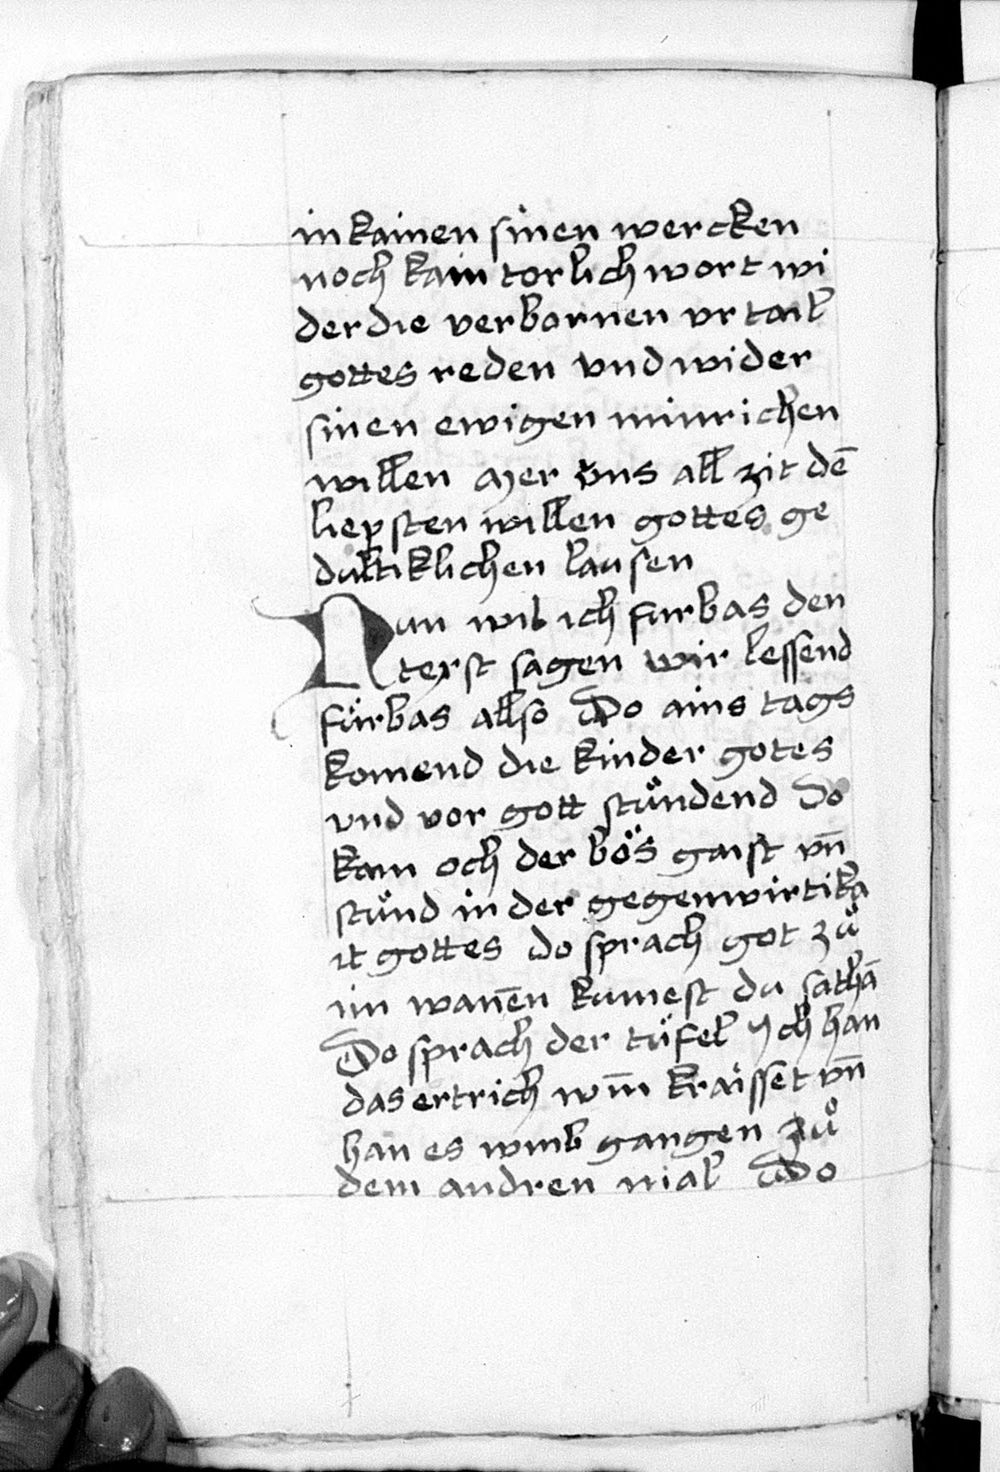 in kainen sinen wercken
noch kain torlich wort wi
der die verbornen vrtail
gottes reden vnd wider
sinen ewigen minrichen
willen mer vns all zit dē
liepsten willen gottes ge
dultiklichen lausen
Nun wil ich furbas den
text sagen wir lessend
fürbas allso Do ains tags
komend die kinder gotes
vnd vor gott stůndend Do
kam och der bös gaist vn̄
stůnd in der gegenwirtika
it gottes do sprach got zů
im wanēn kumest du sathā
Do sprach der tüfel ych han
das ertrich wm̄ kraisset vn̄
han es wmb gangen zů
dem andren mal Do